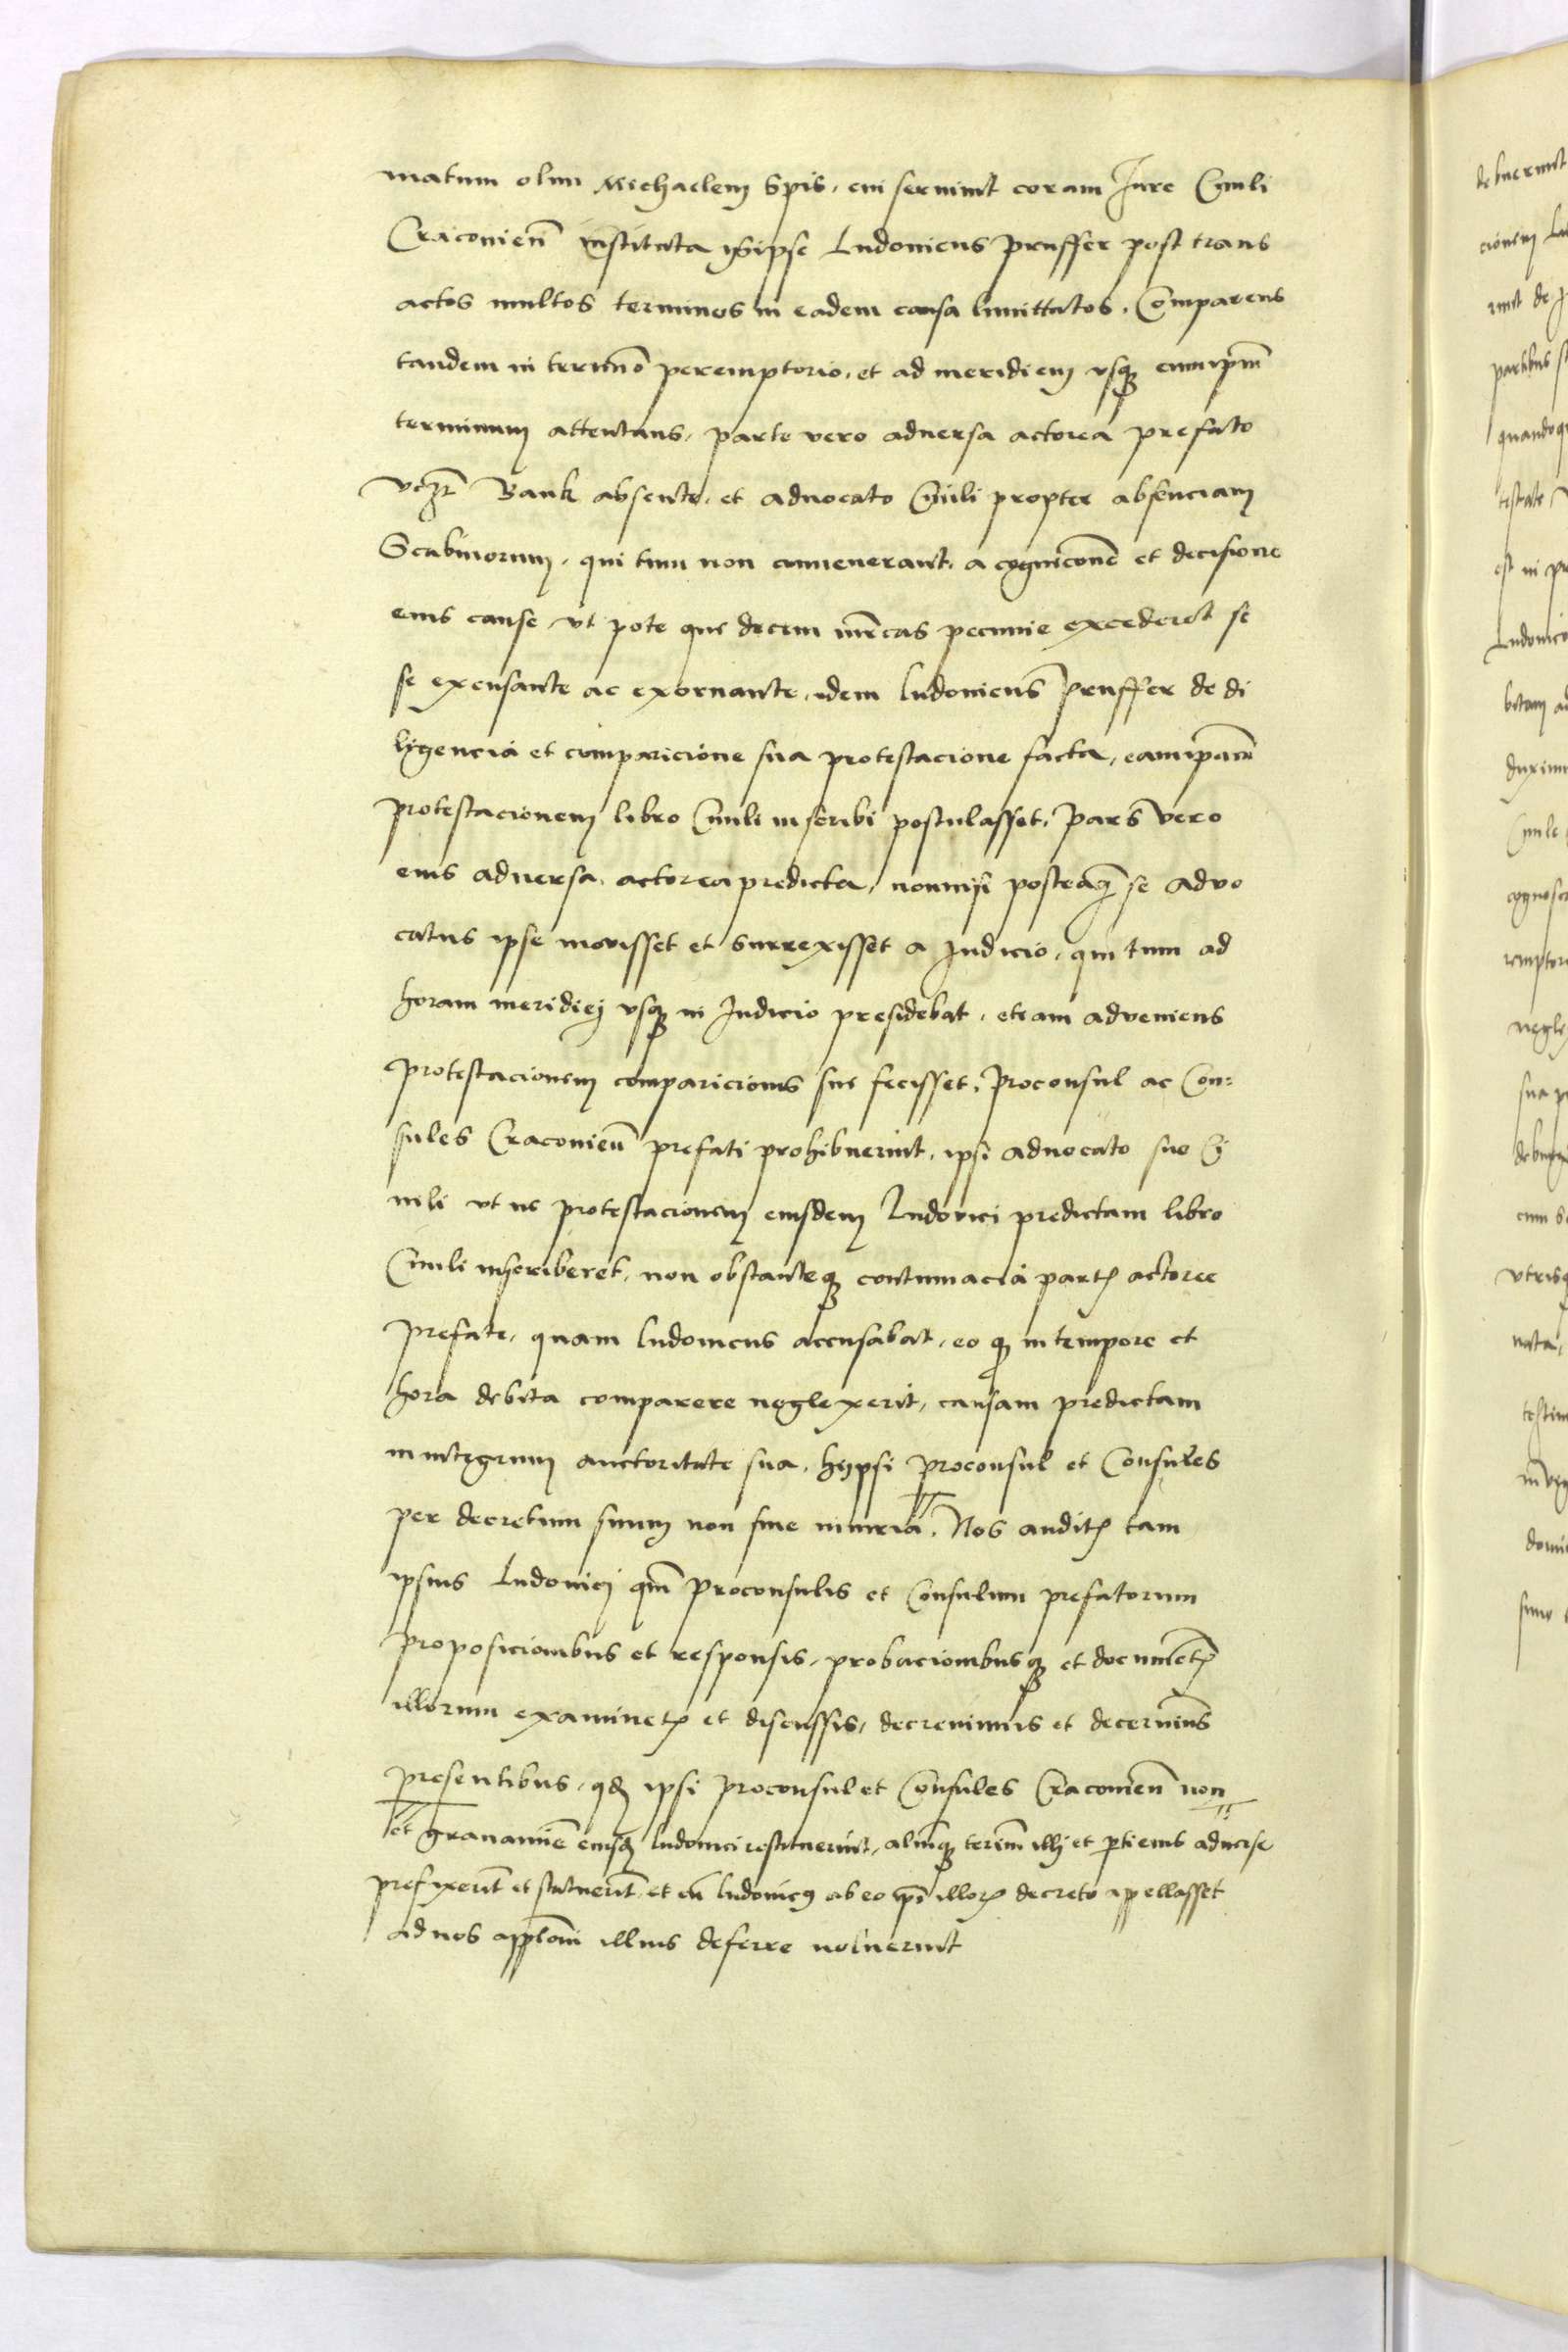 matum olim Michaelem Spis, cui seruiuit coram Jure Ciuili
Cracouien̄ instituta ipse Ludouicus Pruffer post trans
actos multos terminos in eadem causa limittatos. Comparens
tandem in termīo peremptorio, et ad meridiem vsq̄ eumip̄m
terminum attentans, parte vero aduersa actorea prefato
Bank absente, et aduocato Ciuili propter absenciam
Scabinorum, qui tum non conuenerant, a cognicōne et decisione
eius cause, vt pote que decem mr̄cas pecunie excederet se
se excusante ac exornante, idem Ludouicus Pruffer de di
ligencia et comparicione sua protestacione facta, eamip̄am
protestacionem libro Ciuili inscribi postulasset, Pars vero
eius aduersa, actorea predicta, nonnisi posteaq̄ se Aduo
catus ipse mouisset et surrexisset a Judicio, qui tum ad
horam meridiej vsq̄ in Judicio presidebat, etiam adveniens
protestacionem comparicionis sue fecisset, Proconsul ac Con=
sules Cracouien̄ prefati prohibuerint, ipsi aduocato suo Ci
uili vt ne protestacionem eiusdem Ludovici predictam libro
Ciuili inscriberet, non obstanteq̄ contumacia part₎ actoree
prefate, quam Ludouicus accusabat, eo q̄ in tempore et
hora debita comparere neglexerit, causam predictam
in integrum auctoritate sua, hijpsi proconsul et Consules
per decretum suum non sine iniuria. Nos audit₎ tam
ipsius Ludouicj qm̄ proconsulis et Consulum prefatorum
proposicionibus et responsis, probacionibusq̄ et documēt₎
illorum examinet₎ et discussis, decreuimus et decernim̄s
presentibus, qd₎ ipsi proconsul et Consules Cracouien̄ non
et grauamīe eiusd₎ Ludouici restituerint, aliūq̄ termī illj et p̄ti eius aduerse
prefixerīt et statuerīt, et cū Ludouic₉ ab eo ip̄o illor₎ decreto appellasset
ad nos appłom̄ illius deferre noluerint